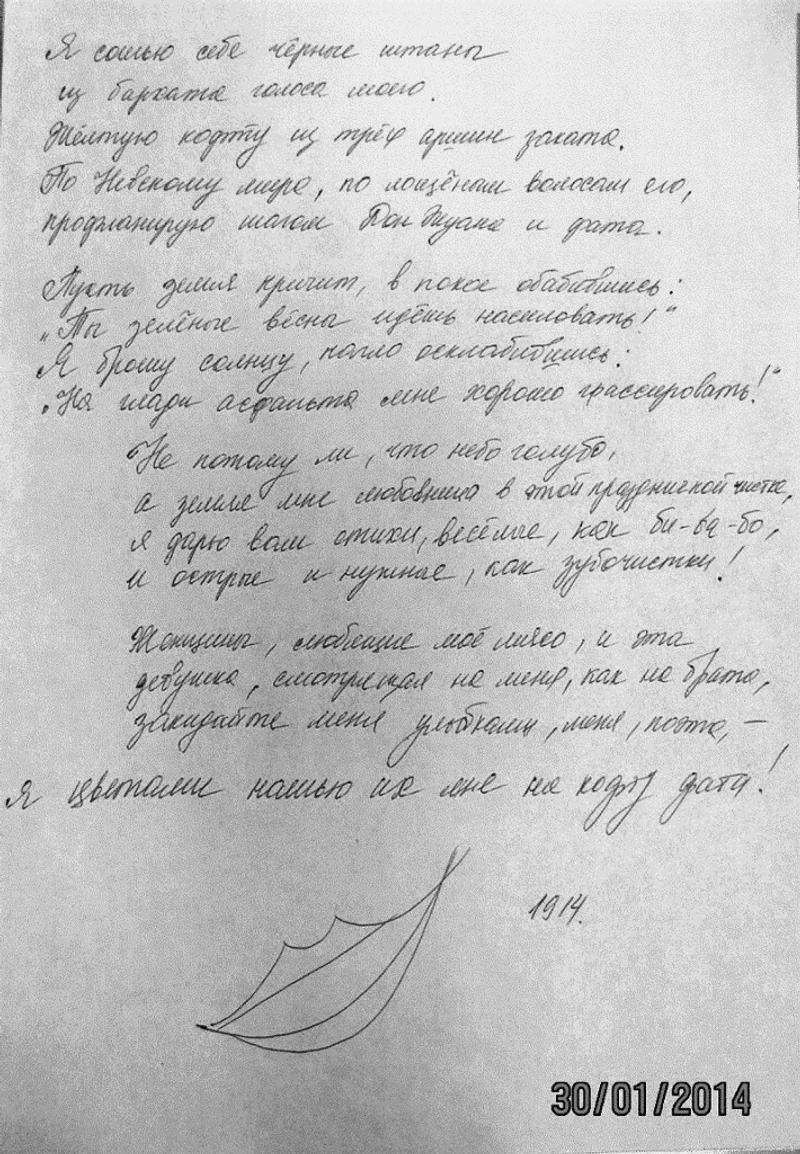 Я сошью себе чёрные штаны
из бархата голоса моего.
Жёлтую кофту из трёх аршин заката.
По Невскому мира, по лощёным волосам его,
профланирую шагом Дон Жуана и фата.
Пусть земля кричит, в покое обабившись:
„Ты зелёные вёсны идёшь насиловать!“
Я брошу солнцу, нагло осклабившись:
„На глади асфальта мне хорошо грассировать!“
Не потому ли, что небо голубо,
а земля мне любовница в этой праздничной чистке,
я дарю вам стихи, весёлые, как би-ба-бо,
и острые и нужные, как зубочистки!
Женщины, любящие моё мясо, и эта
девушка, смотрящая на меня, как на брата,
закидайте меня улыбками, меня, поэта, –
Я цветами нашью их мне на кофту фата!
1914.
30/01/2014